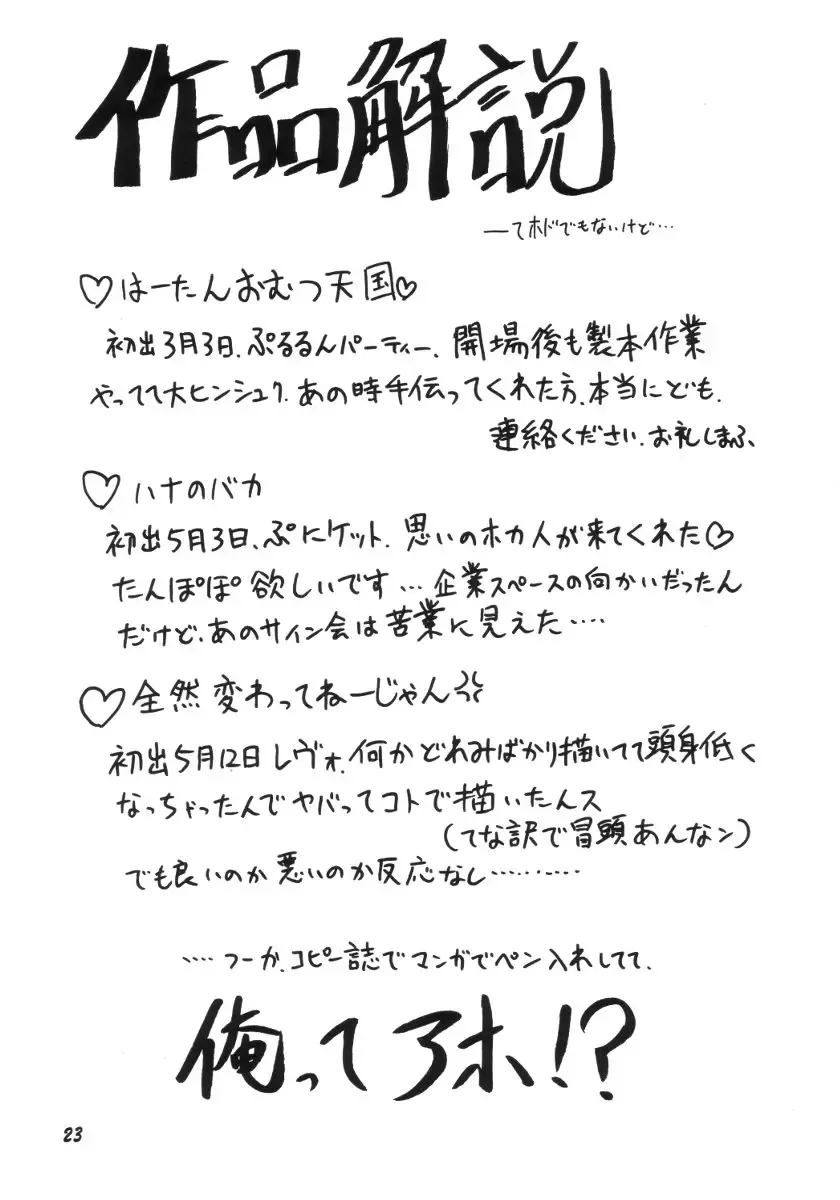 作品解説
ーてホドでもないけど…
♡はーたんおむつ天国♡
初出3月3日、ぷるるんパーティー、開場後も製本作業
やってて大ヒンシュク。あの時手伝ってくれた方、本当にども。
連絡ください、お礼しまふ、
♡ハナのバカ
初出5月3日、ぷにケット、思いのホカ人が来てくれた♡
たんぽぽ欲しいです…企業スペースの向かいだったん
だけど、あのサイン会は苦業に見えた‥‥
♡全然変わってねーじゃん
初出5月12日レヴォ、何かどれみばかり描いてて頭身低く
なっちゃったんでヤバってコトで描いたんス
(てな訳で冒頭あんなン)
でも良いのか悪いのか反応なし………
‥‥つーか、コピー誌でマンガでペン入れしてて、
俺ってアホ!?
23